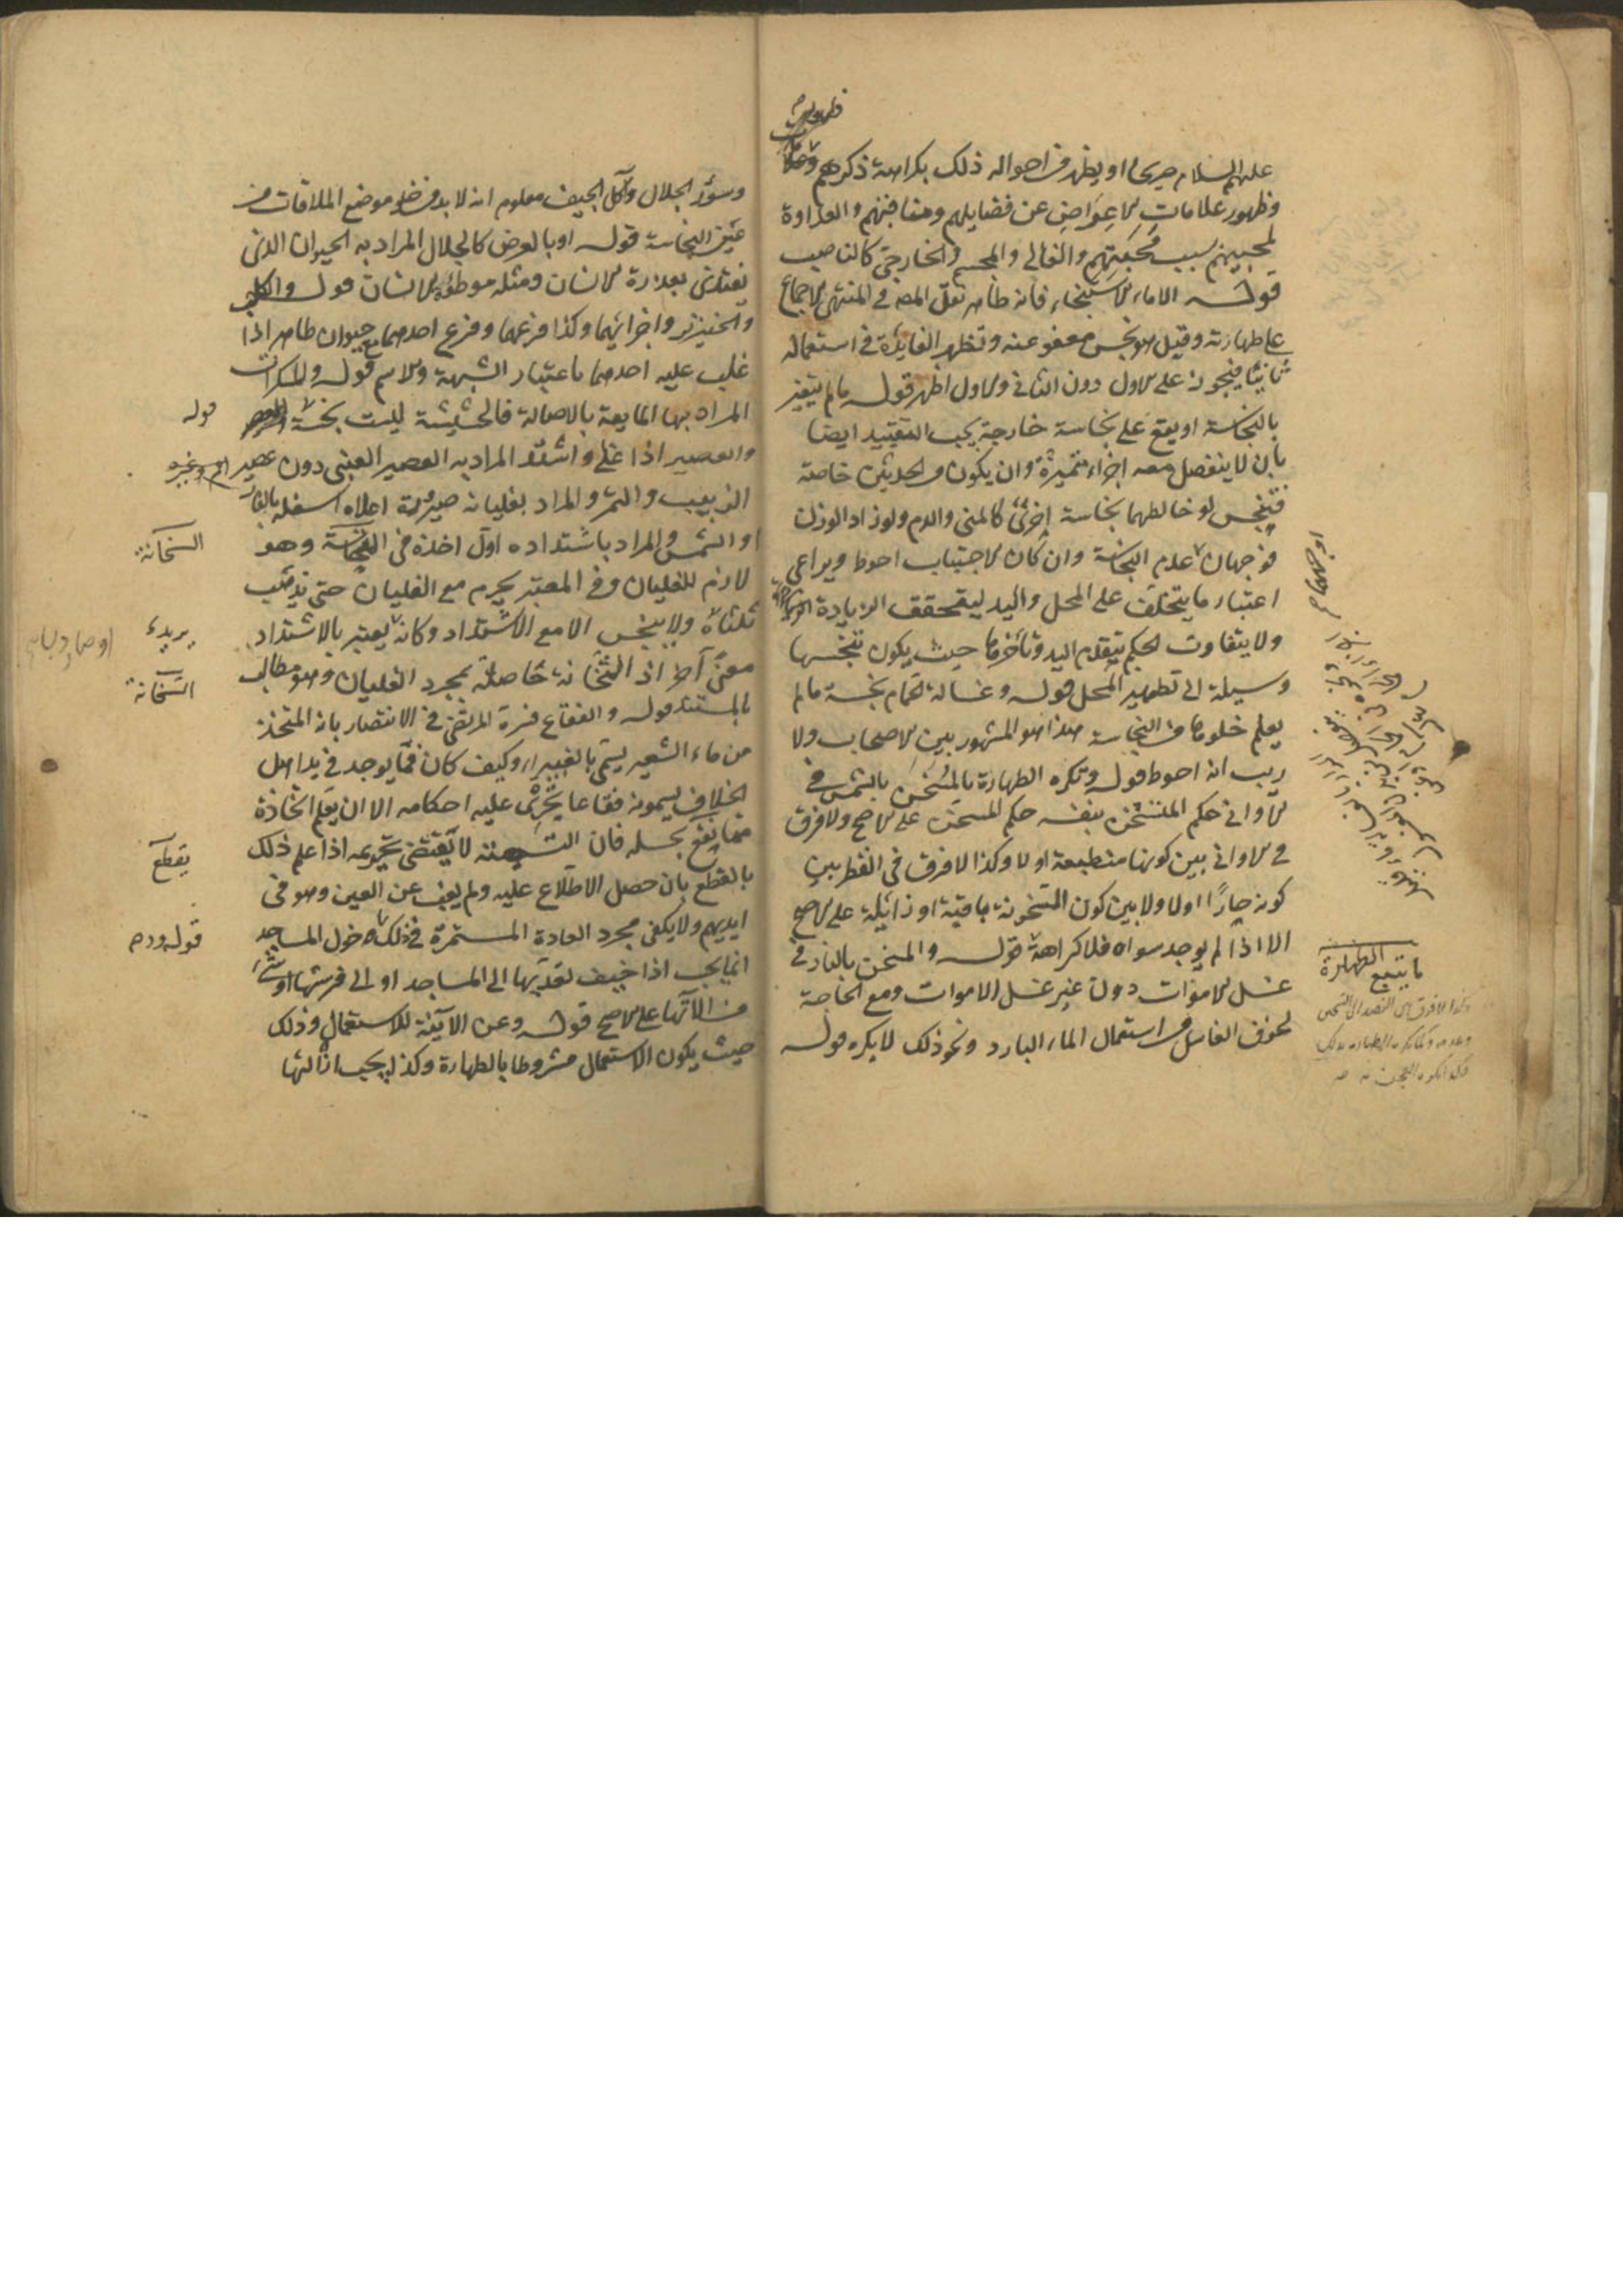 عليهم السلام صريحا او يظهر من احواله ذلك بكراهة ذكرهم
وظهور علامات الاعراض عن فضايلهم ومناقبهم والعداوة
لمحبيهم بسبب محبتهم والغالي والمجسم والخارجي كالناصب
قوله الا ماء الاستنجاء فانه طاهر نقل المص في المنتهى الاجماع
على طهارته وقيل هو نجس معفو عنه وتظهر الفايدة في استعماله
ثانيا فيجوز على الاول دون الثاني والاول اظهر قوله ما لم يتغير
بالنجاسة او يقع على نجاسة خارجة يجب التقييد ايضا
بان لا ينفصل معه اجزاء متميزة وان يكون من الحدثين خاصة
فينجس لو خالطهما نجاسة اخرى كالمني والدم ولو زاد الوزن
فوجهان عدم النجاسة وان كان الاجتناب احوط ويراعى
اعتبار ما يتخلف على المحل واليد ليتحقق الزيادة
ولا يتفاوت الحكم بتقدم اليد وتأخرها حيث يكون تنجسها
وسيلة الى تطهير المحل قوله وغسالة الحمام نجسة ما لم
يعلم خلوها من النجاسة هذا هو المشهور بين الاصحاب ولا
ريب انه احوط قوله وتكره الطهارة بالمسخن بالشمس في
الاواني حكم المتسخن بنفسه حكم المسخن على الاصح ولا فرق
في الاواني بين كونها منطبعة او لا وكذا لا فرق في القطر بين
كونه حارا او لا ولا بين كون السخونة باقية او زائلة على الاصح
الا اذا لم يوجد سواه فلا كراهة قوله والمسخن بالنار في
غسل الاموات دون غير غسل الاموات ومع الحاجة
لخوف الغاسل من استعمال الماء البارد ونحو ذلك لا يكره قوله
ما يتبع الطهارة
وسؤر الجلال وآكل الجيف معلوم انه لا بد من خلو موضع الملاقات من
عين النجاسة قوله او بالعرض كالجلال المراد به الحيوان الذي
يغتذي بعذرة الانسان ومثله موطؤ الانسان قوله والكلب
والخنزير واجزائهما وكذا فرعهما وفرع احدهما مع حيوان طاهر اذا
غلب عليه احدهما باعتبار الشبهة والاسم قوله والمسكرات
المراد بها المايعة بالاصالة فالحشيشة ليست نجسة
قوله
والعصير اذا غلى واشتد المراد به العصير العنبي دون عصير التمر وغيره
الزبيب والتمر والمراد بغليانه صيرورة اعلاه اسفله بالنار
او الشمس والمراد باشتداده اول اخذه في الثخانة وهو
السخانة
لازم للغليان وفي المعتبر يحرم مع الغليان حتى يذهب
ثلثاه ولا ينجس الا مع الاشتداد وكانه يعتبر بالاشتداد
يريد
معنى آخر اذ الثخانة حاصلة بمجرد الغليان وهو مطالب
السخانة
بالمستند قوله والفقاع فسره المرتضى في الانتصار بانه المتخذ
من ماء الشعير يسمى بالغبيراء وكيف كان فما يوجد في يد اهل
الخلاف يسمونه فقاعا يجري عليه احكامه الا ان يعلم اتخاذه
مما يقطع بحله فان التسمية لا يقتضي تحريمه اذا علم ذلك
يقطع
بالقطع بان حصل الاطلاع عليه ولم يغب عن العين وهو في
ايديهم ولا يكفي مجرد العادة المستمرة في ذلك دخول المساجد
قوله ود
انما يجب اذا خيف تعديها الى المساجد او الى فرشها او شيء
من آلاتها على الاصح قوله وعن الآنية للاستعمال وذلك
حيث يكون الاستعمال مشروطا بالطهارة وكذا يجب ازالتها